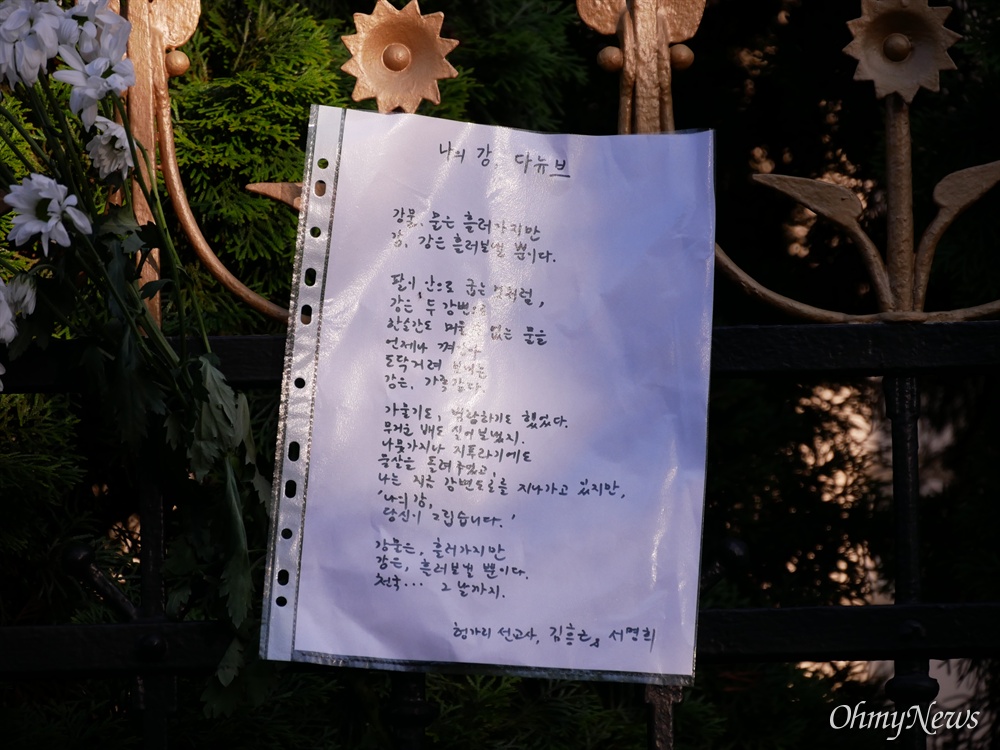 나의 강, 다뉴브
강물, 물은 흘러가지만
강, 강은 흘러보낼 뿐이다.
팔이 안으로 굽는 것처럼,
강은 두 강변으로
한순간도 머물 수 없는 물을
언제나 껴안아
토닥거려 보내는
강은, 가족같다.
가물기도, 범람하기도 했었다.
무거운 배도 실어 보냈지.
나뭇가지나 지푸라기에도
물살을 돌려주었고,
나는 지금 강변도로를 지나가고 있지만,
'나의 강,
당신이 그립습니다.'
강물은, 흘러가지만
강은, 흘러보낼 뿐이다.
천국... 그 날까지.
헝가리 선교사, 김흥근, 서명희
OhmyNews